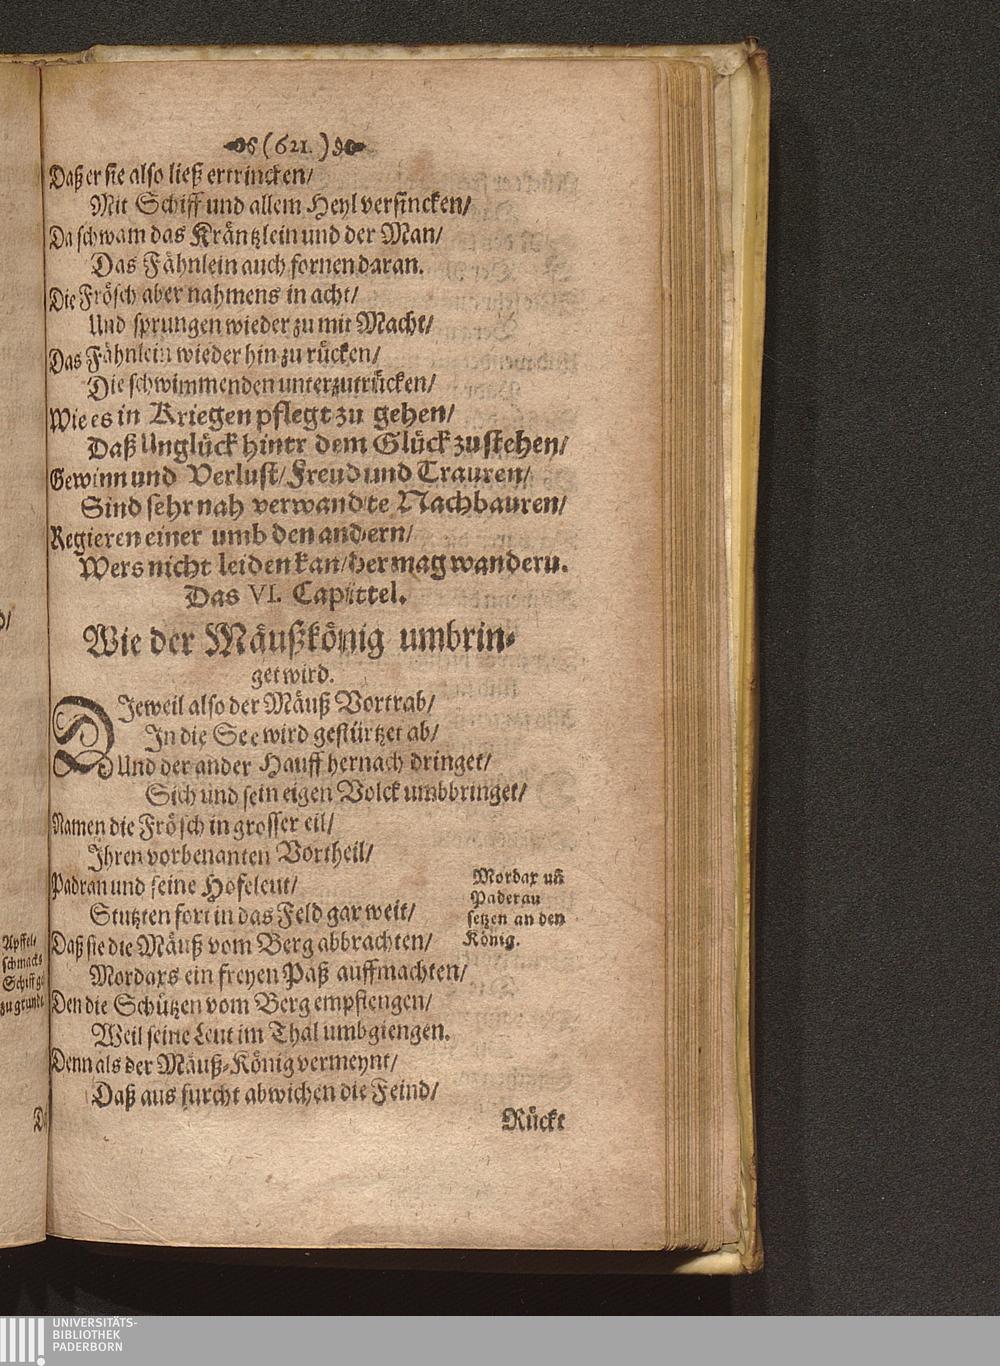 (621.)
Daß er sie also ließ ertrincken/
Mit Schiff und allem Heyl versincken/
Da schwam das Kräntzlein und der Man/
Das Fähnlein auch fornen daran.
Die Frösch aber nahmens in acht/
Und sprungen wieder zu mit Macht/
Das Fähnlein wieder hin zu rücken/
Die schwimmenden unterzutrücken/
Wie es in Kriegen pflegt zu gehen/
Daß Unglück hintr dem Glück zu stehen/
Gewinn und Verlust/ Freud und Trauren/
Sind sehr nah verwandte Nachbauren/
Regieren einer umb den andern/
Wers nicht leiden kan/ der mag wandern.
Das VI. Capittel.
Wie der Mäußkönig umbrin-
get wird.
DJeweil also der Mäuß Vortrab/
In die See wird gestürtzet ab/
Und der ander Hauff hernach dringet/
Sich und sein eigen Volck umbbringet/
Namen die Frösch in grosser eil/
Ihren vorbenanten Vortheil/
Padran und seine Hofeleut/
Stutzten fort in das Feld gar weit/
Daß sie die Mäuß vom Berg abbrachten/
Mordaxs ein freyen Paß auffmachten/
Den die Schützen vom Berg empfiengen/
Weil seine Leut im Thal umbgiengen.
Denn als der Mäuß-König vermeynt/
Daß aus furcht abwichen die Feind/
Rückt
Mordax uñ
Paderau
setzen an den
König.
Apffel-
schmacks
Schiff
zu grunde
UNIVERSITÄTS-
BIBLIOTHEK
PADERBORN